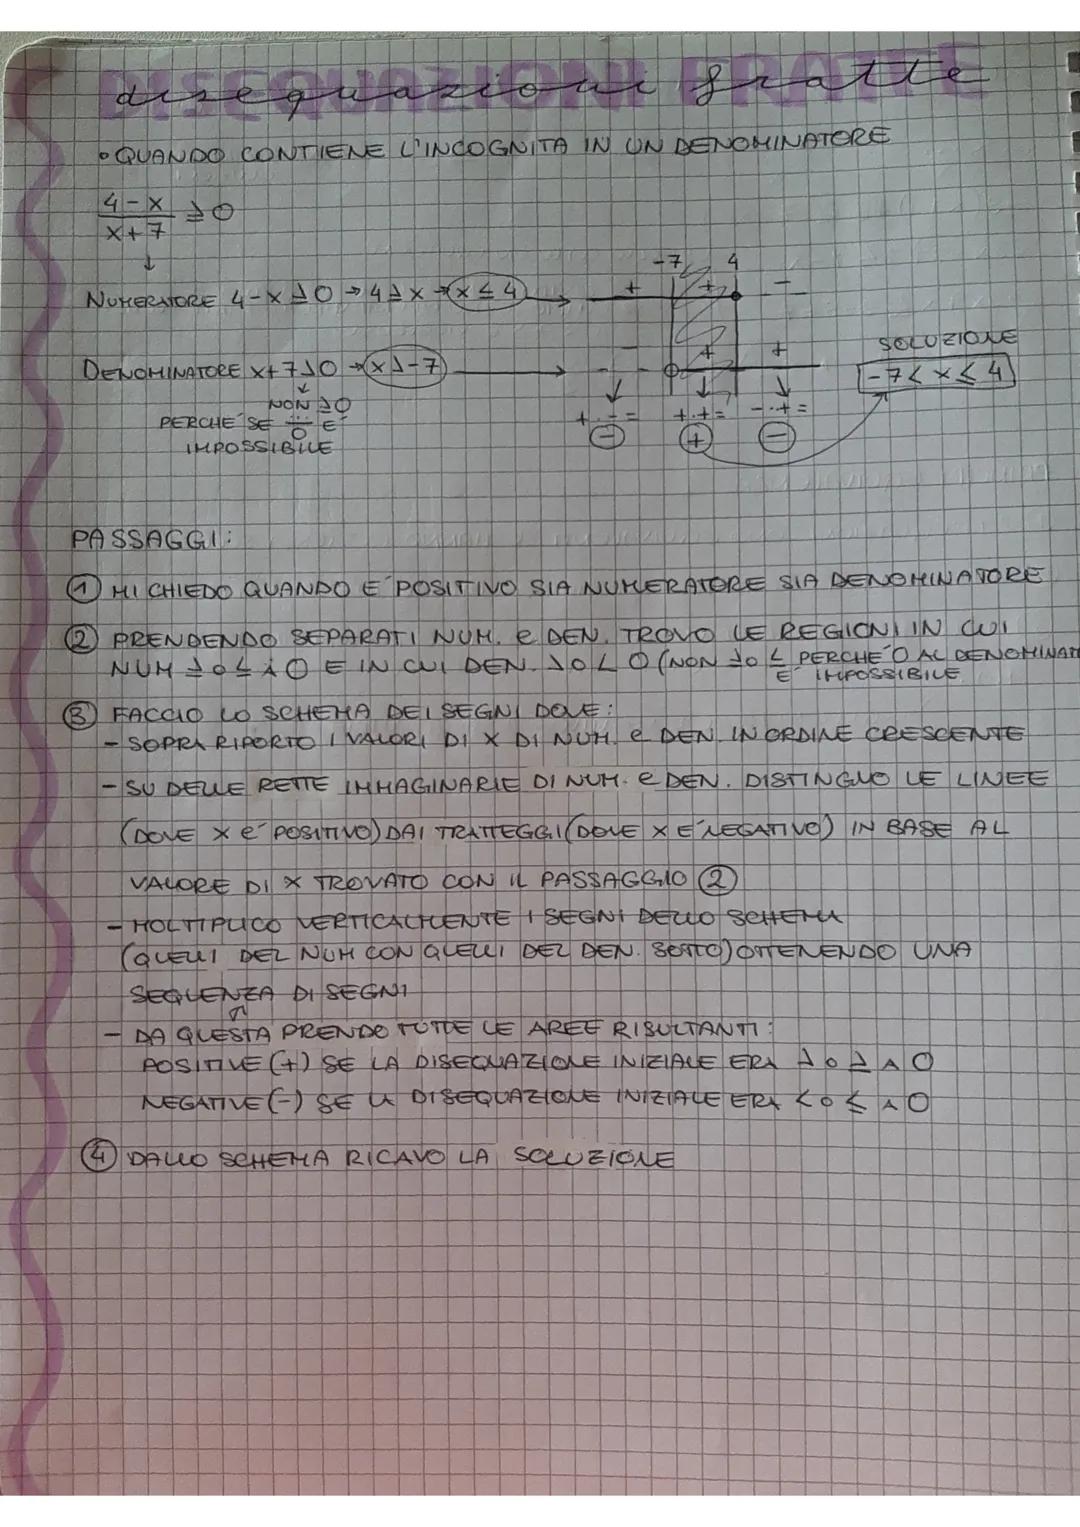 DISEQUAZIONI FRATTE
disequazioni fratte
• QUANDO CONTIENE L'INCOGNITA IN UN DENOMINATORE
4-x
x+7
≥0
↓
NUMERATORE 4-x≥0 → 4≥x → x≤4
DENOMINATORE x+7>0 → x>-7
↓
NON ≥0
PERCHE' SE ···/0 E'
IMPOSSIBILE
-7 4
+ + -
- + +
+·-= +·+= -·+=
- + -
SOLUZIONE
-7<x≤4
PASSAGGI:
① MI CHIEDO QUANDO E' POSITIVO SIA NUMERATORE SIA DENOMINATORE
② PRENDENDO SEPARATI NUM. e DEN. TROVO LE REGIONI IN CUI
NUM ≥ o ≤ A 0 E IN CUI DEN. > o < 0 (NON ≥ o ≤ PERCHE' 0 AL DENOMINAT
E' IMPOSSIBILE
③ FACCIO LO SCHEMA DEI SEGNI DOVE:
- SOPRA RIPORTO I VALORI DI X DI NUM. e DEN. IN ORDINE CRESCENTE
- SU DELLE RETTE IMMAGINARIE DI NUM. e DEN. DISTINGUO LE LINEE
(DOVE X E' POSITIVO) DAI TRATTEGGI (DOVE X E' NEGATIVO) IN BASE AL
VALORE DI X TROVATO CON IL PASSAGGIO ②
- MOLTIPLICO VERTICALMENTE I SEGNI DELLO SCHEMA
(QUELLI DEL NUM CON QUELLI DEL DEN. SOTTO) OTTENENDO UNA
SEQUENZA DI SEGNI
- DA QUESTA PRENDO TUTTE LE AREE RISULTANTI:
POSITIVE (+) SE LA DISEQUAZIONE INIZIALE ERA > o ≥ A 0
NEGATIVE (-) SE LA DISEQUAZIONE INIZIALE ERA < o ≤ A 0
④ DALLO SCHEMA RICAVO LA SOLUZIONE